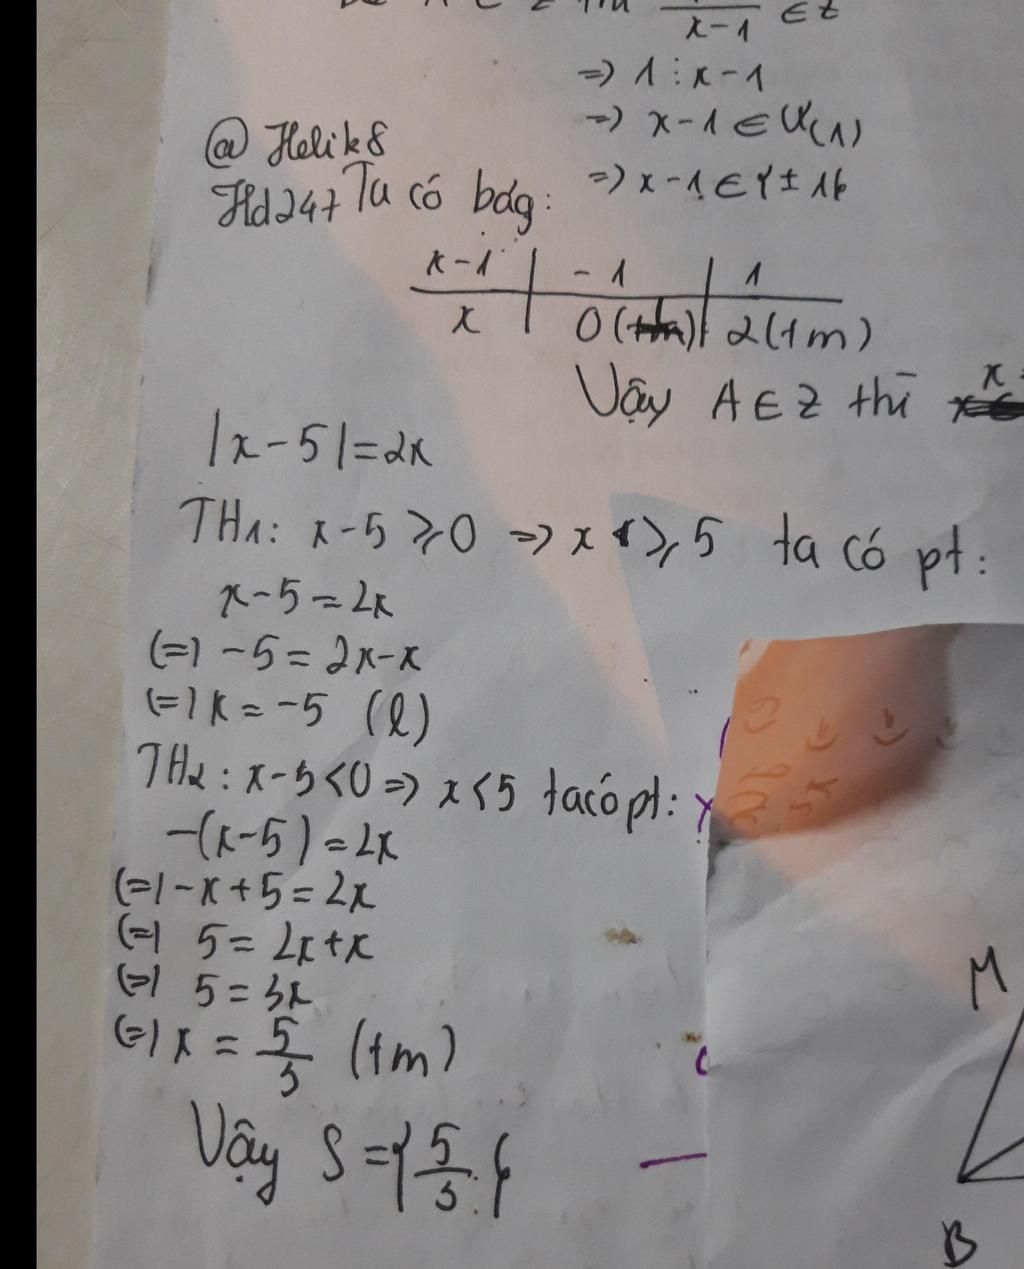 x-1 ∈ Z
=> 1 ⋮ x-1
=> x-1 ∈ Ư(1)
@ Helik8
=> x-1 ∈ {±1}
Hd247 Ta có bảg:
x-1 | -1 | 1
x | 0 | 2(tm)
Vậy A ∈ Z thì x
|x-5|=2x
TH1: x-5 ⩾ 0 => x ⩾ 5 ta có pt:
x-5 = 2x
(=) -5 = 2x-x
(=) x = -5 (l)
TH2: x-5<0 => x<5 ta có pt:
-(x-5) = 2x
(=) -x+5 = 2x
(=) 5 = 2x+x
(=) 5 = 3x
(=) x = 5/3 (tm)
Vậy S = {5/3}
M
B